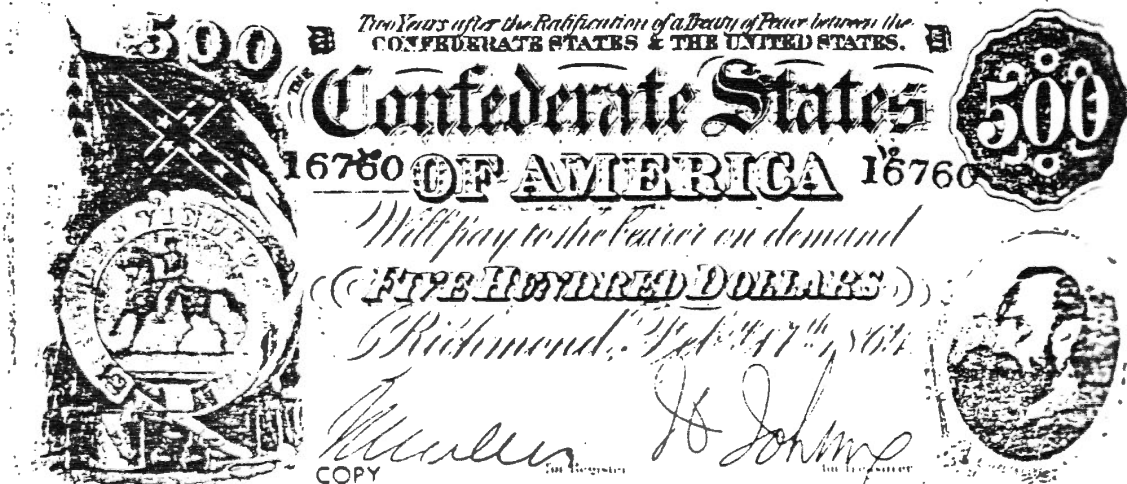 500
Two Years after the Ratification of a Treaty of Peace between the
CONFEDERATE STATES & THE UNITED STATES.
THE
Confederate States
500
16760 OF AMERICA 16760
Will pay to the bearer on demand
FIVE HUNDRED DOLLARS
Richmond, Feb 17th, 1864
COPY
for Register
for Treasurer